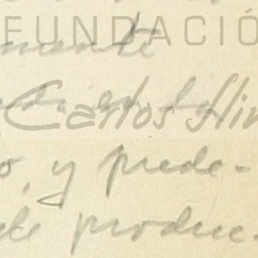 FUNDACIÓ
mente
Carlos Slim
o, y prede-
de produc-